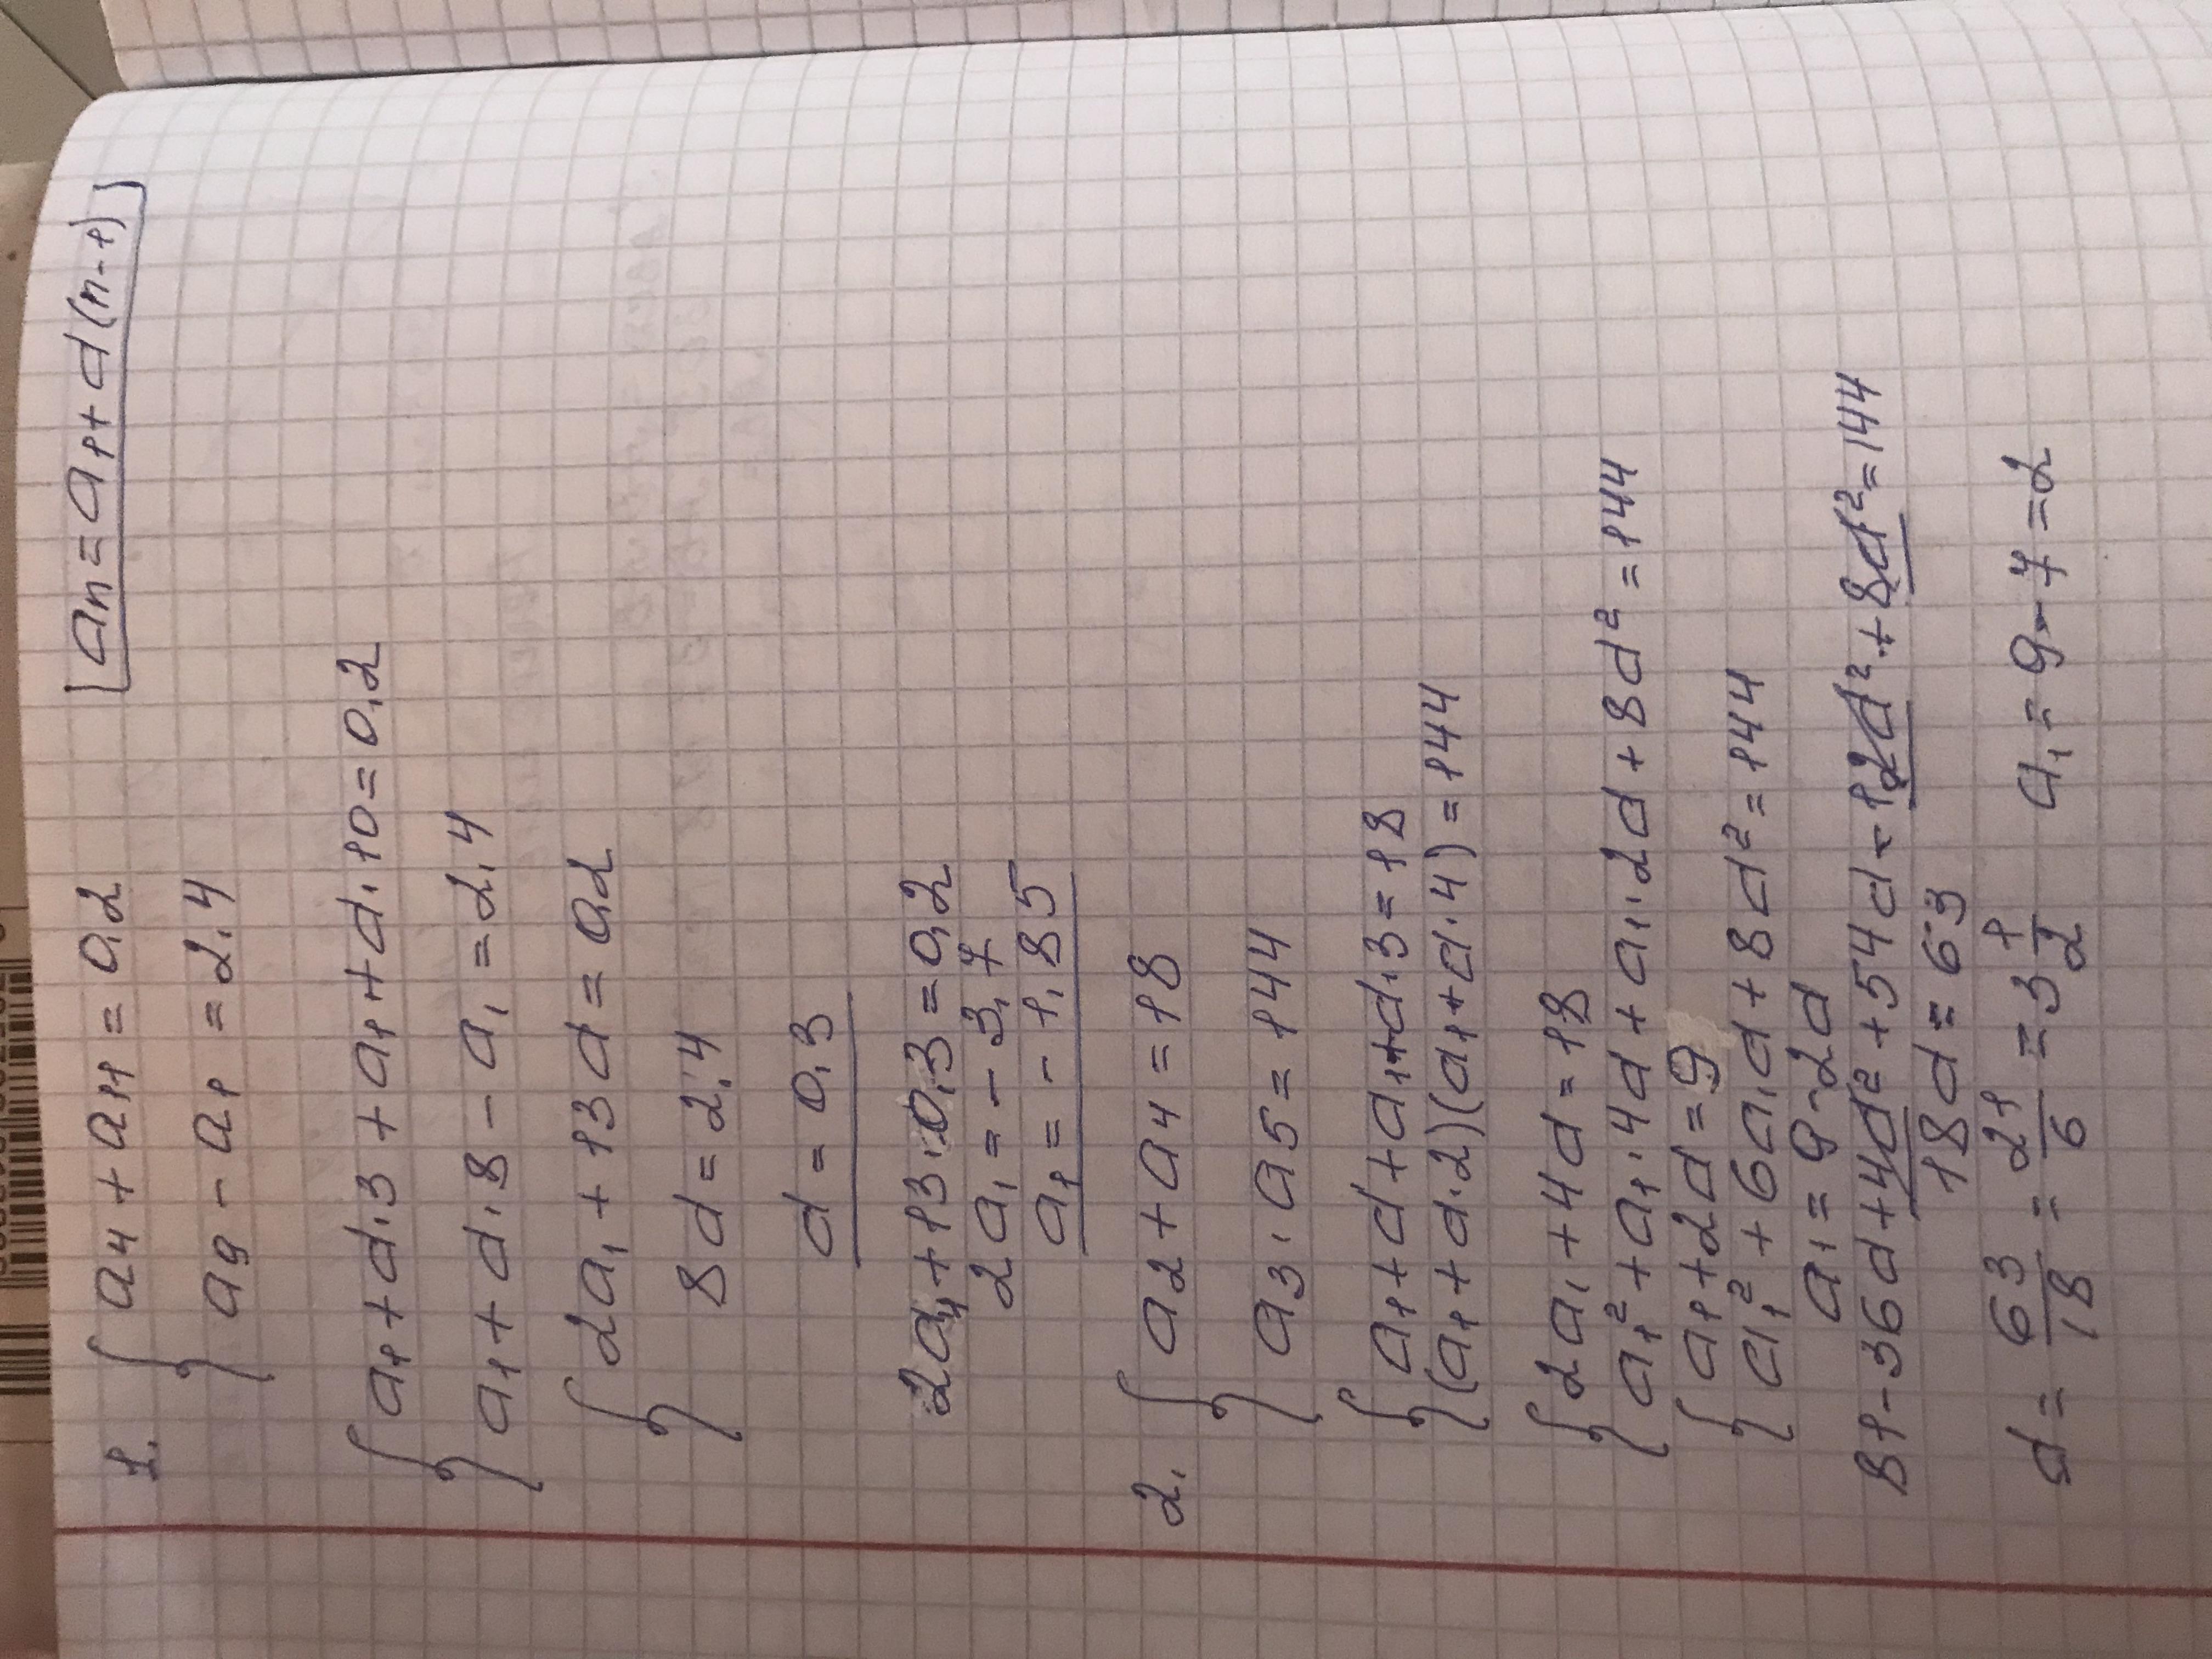 1. { a₄ + a₁₁ = 0,2 | aₙ = a₁ + d(n-1)
a₉ - a₁ = 2,4
{ a₁ + d·3 + a₁ + d·10 = 0,2
a₁ + d·8 - a₁ = 2,4
{ 2a₁ + 13d = 0,2
8d = 2,4
d = 0,3
2a₁ + 13·0,3 = 0,2
2a₁ = - 3,7
a₁ = - 1,85
2. { a₂ + a₄ = 18
a₃ · a₅ = 144
{ a₁ + d + a₁ + d·3 = 18
(a₁ + d·2)(a₁ + d·4) = 144
{ 2a₁ + 4d = 18
a₁² + a₁·4d + a₁·2d + 8d² = 144
{ a₁ + 2d = 9
a₁² + 6a₁d + 8d² = 144
a₁ = 9 - 2d
81 - 36d + 4d² + 54d - 12d² + 8d² = 144
18d = 63
d = 63/18 = 21/6 = 3 1/2 a₁ = 9 - 7 = 2